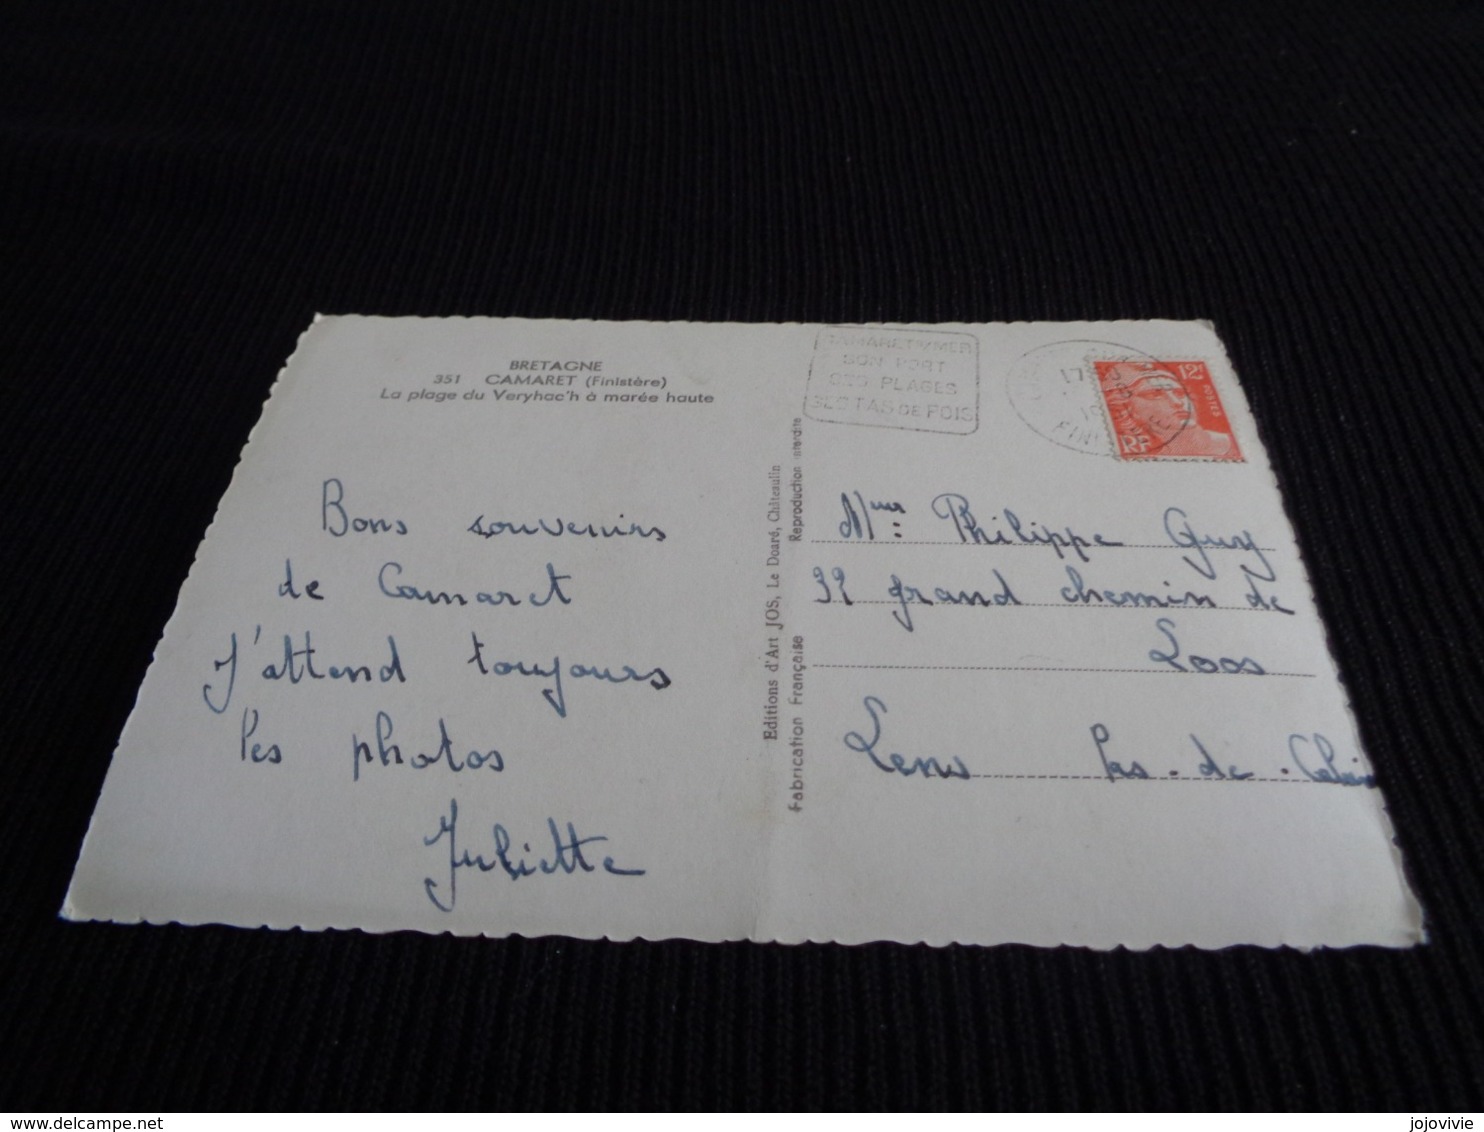 BRETAGNE
351 CAMARET (Finistère)
La plage du Veryhac'h à marée haute
CAMARET S/MER
SON PORT
SES PLAGES
SES TAS DE POIS
12F
POSTES
RF
Bons souvenirs
de Camaret
J'attend toujours
les photos
Juliette
Editions d'Art JOS, Le Doaré, Châteaulin
Fabrication Française
Reproduction interdite
Philippe Guy
grand chemin de
Loos
Lens Pas-de-Calais
delcampe.net
jojovivie